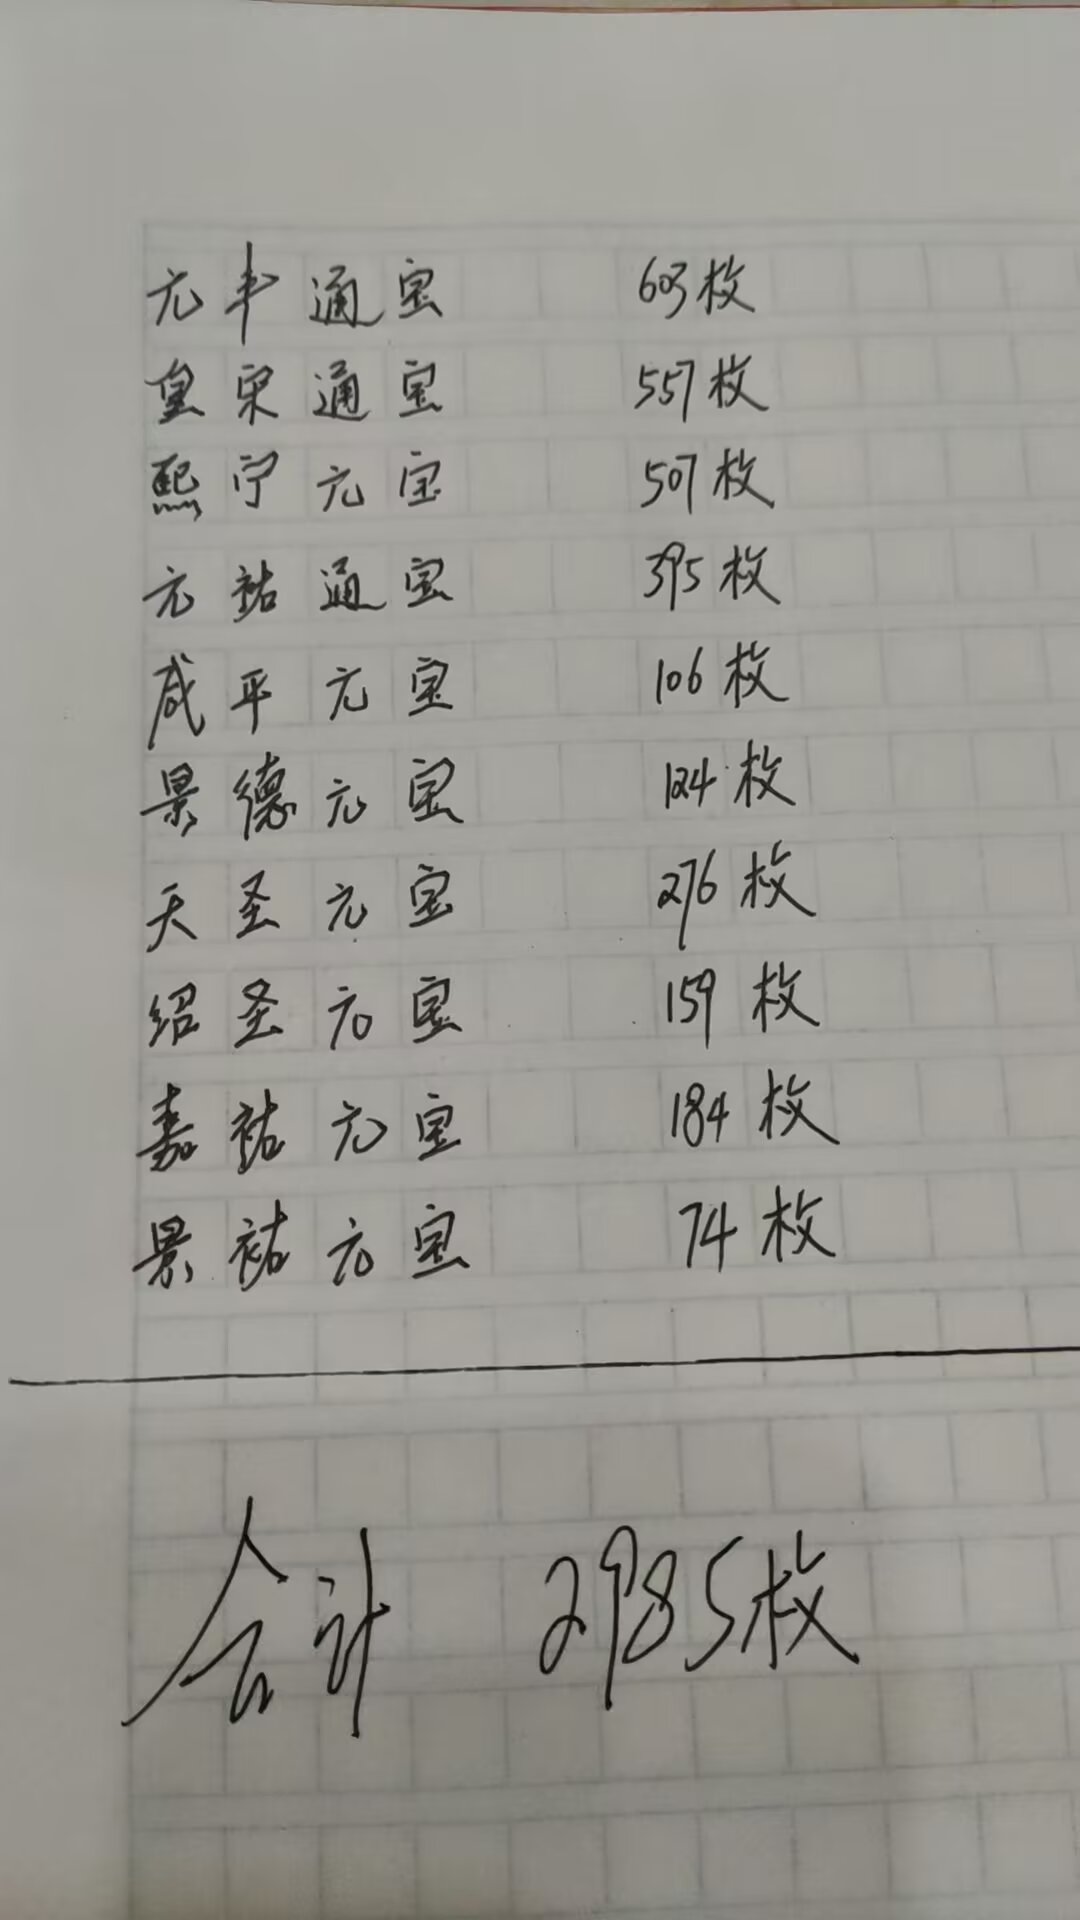 元丰通宝 603枚
皇宋通宝 557枚
熙宁元宝 507枚
元祐通宝 395枚
咸平元宝 106枚
景德元宝 124枚
天圣元宝 276枚
绍圣元宝 159枚
嘉祐元宝 184枚
景祐元宝 74枚
合计 2985枚